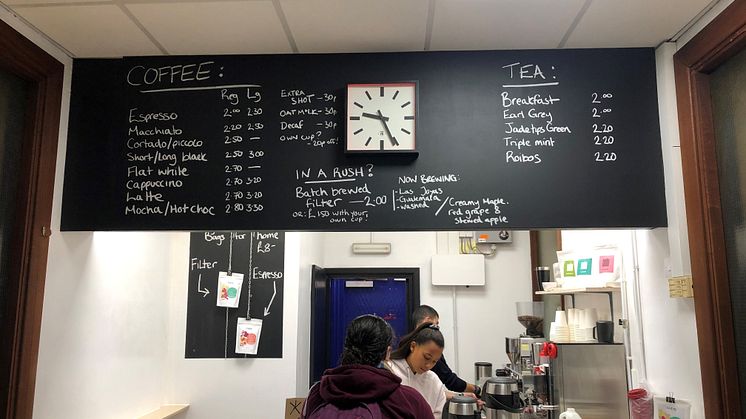 COFFEE:
Reg Lg
Espresso 2.00 2.30
Macchiato 2.20 2.50
Cortado/piccolo 2.50
Short/long black 2.50 3.00
Flat white 2.70
Cappuccino 2.70 3.20
Latte 2.70 3.20
Mocha/Hot choc 2.80 3.30
EXTRA
SHOT - 30p
OAT M*LK - 30p
Decaf - 30p
OWN CUP?
- 20p off!
IN A RUSH?
Batch brewed
filter — 2.00
OR: £1.50 with your
own cup.
NOW BREWING:
- Las Joyas
- Guatemala
- Washed
Creamy Maple,
red grape &
stewed apple
TEA:
Breakfast 2.00
Earl Grey 2.00
Jade tips Green 2.20
Triple mint 2.20
Roibos 2.20
Bags for home
£8-
Filter
Espresso